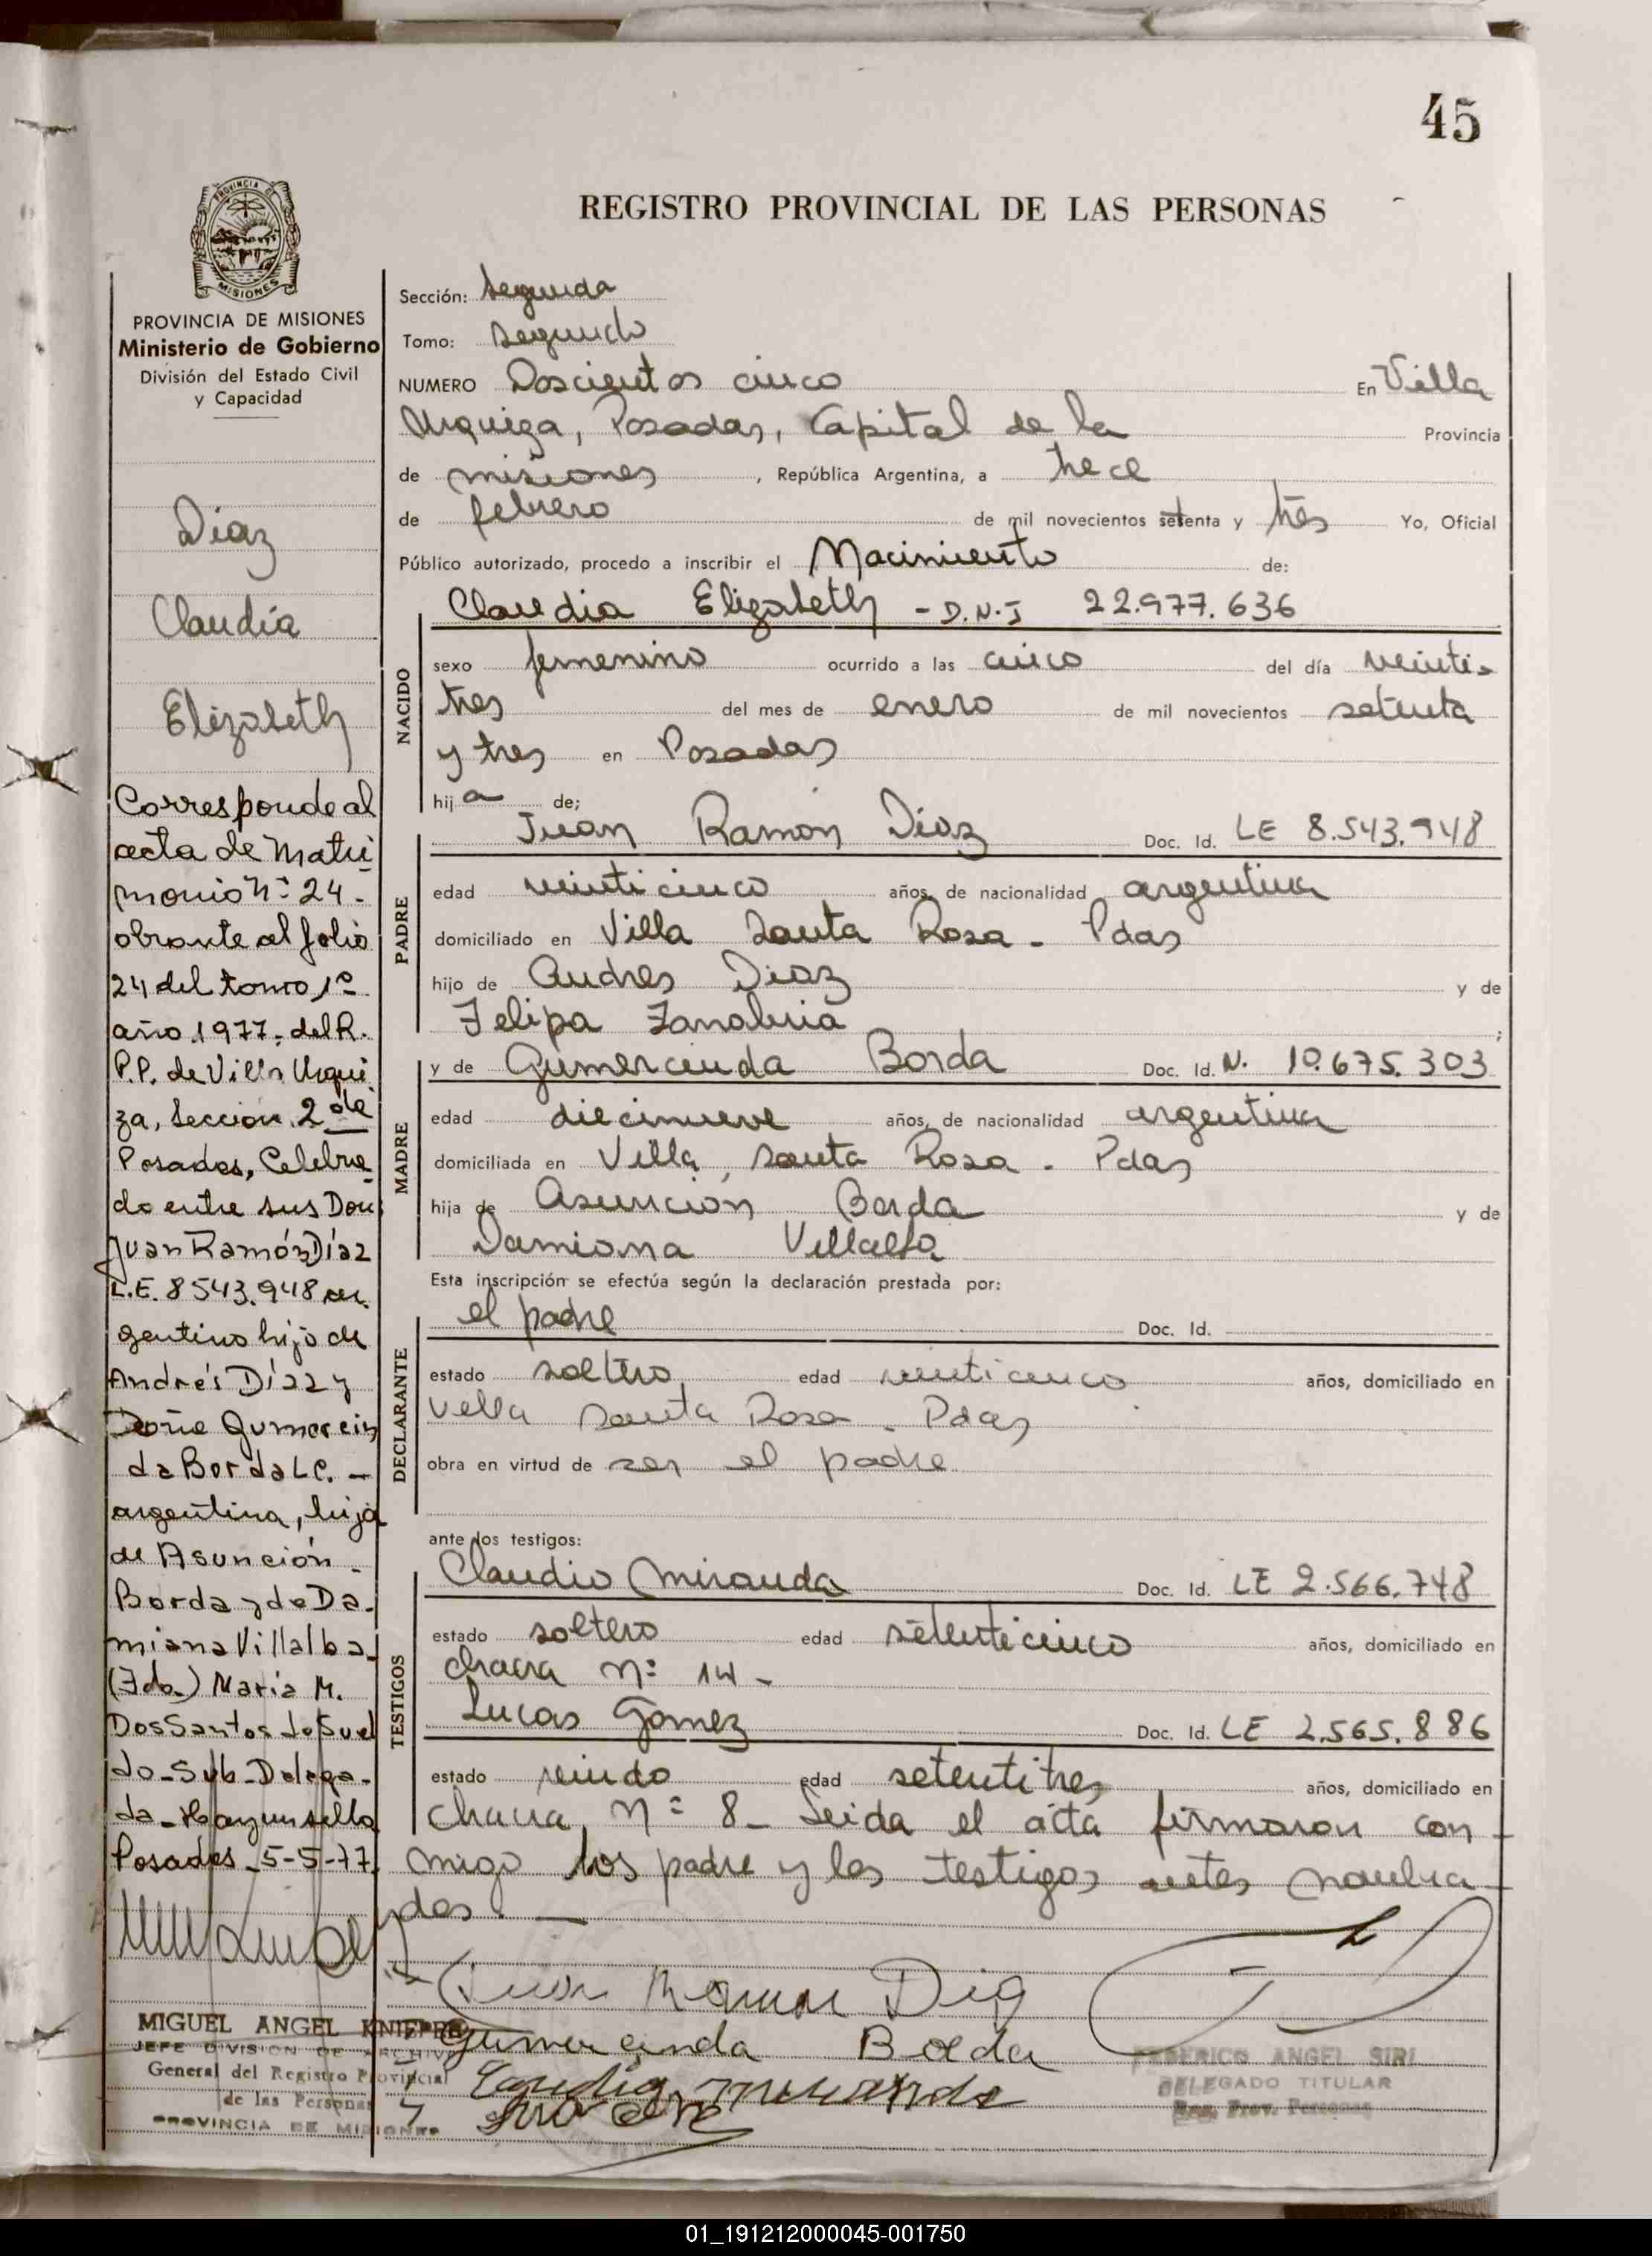 45
REGISTRO PROVINCIAL DE LAS PERSONAS
PROVINCIA DE
MISIONES
PROVINCIA DE MISIONES
Ministerio de Gobierno
División del Estado Civil
y Capacidad
Diaz
Claudia
Elizabeth
Corresponde al
acta de Matri
monio Nº 24-
obrante al folio
24 del tomo 1º
año 1977- del R.
P.P. de Villa Urqui
za, Sección 2da
Posadas, Celebra
do entre sus Don
Juan Ramón Díaz
L.E. 8543.948 ar
gentino hijo de
Andrés Díaz y
Doña Gumercin
da Borda LC. -
argentina, hija
de Asunción
Borda y de Da-
miana Villalba-
(Fdo.) María M.
Dos Santos de Suel
do-Sub-Delega-
da-Hay un sello
Posadas-5-5-77
MIGUEL ANGEL KNIEPPE
JEFE DIVISION DE ARCHIVO
General del Registro Provincial
de las Personas
PROVINCIA DE MISIONES
Sección: Segunda
Tomo: segundo
NUMERO Doscientos cinco En Villa
Urquiza, Posadas, Capital de la Provincia
de misiones, República Argentina, a trece
de febrero de mil novecientos setenta y tres Yo, Oficial
Público autorizado, procedo a inscribir el Nacimiento de:
NACIDO
Claudia Elizabeth - D.N.I 22.977.636
sexo femenino ocurrido a las cinco del día veinti-
tres del mes de enero de mil novecientos setenta
y tres en Posadas
hija de;
PADRE
Juan Ramón Diaz Doc. Id. LE 8.543.948
edad veinticinco años, de nacionalidad argentina
domiciliado en Villa Santa Rosa - Pdas
hijo de Andres Diaz y de
Felipa Zanabria;
MADRE
y de Gumercinda Borda Doc. Id. N. 10.675.303
edad diecinueve años, de nacionalidad argentina
domiciliada en Villa, Santa Rosa - Pdas
hija de Asunción Borda y de
Damiana Villalba
Esta inscripción se efectúa según la declaración prestada por:
DECLARANTE
el padre Doc. Id.
estado soltero edad veinticinco años, domiciliado en
Villa Santa Rosa - Pdas
obra en virtud de ser el padre
ante los testigos:
TESTIGOS
Claudio Miranda Doc. Id. LE 2.566.748
estado soltero edad setenticinco años, domiciliado en
chacra nº 14-
Lucas Gomez Doc. Id. LE 2.565.886
estado viudo edad setentitres años, domiciliado en
chacra nº 8- Leida el acta firmaron con-
migo los padre y los testigos antes nombra-
dos. -
Juan Ramon Diaz
Gumercinda Borda
Claudio Miranda
FEDERICO ANGEL SIRI
DELEGADO TITULAR
Reg. Prov. Personas
01_191212000045-001750